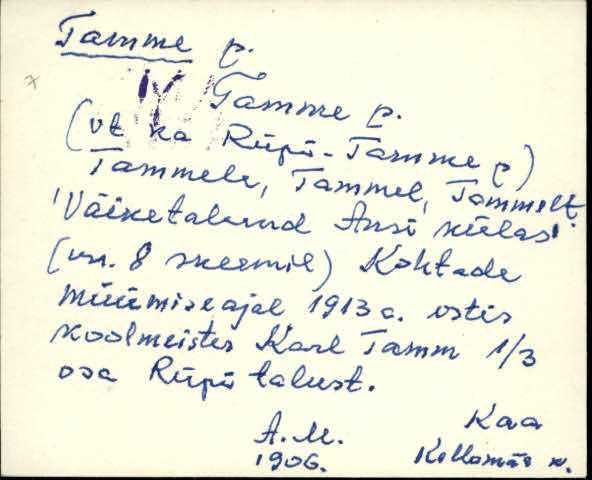 Tamme p.
Tamme p.
(vt ka Rüpü-Tamme p)
Tammele, Tammel, Tammelt
'Väiketalund Ansi külas'
(nr. 8 skeemil) Kohtade
müümiseajal 1913 a. ostis
koolmeister Karl Tamm 1/3
osa Rüpü talust.
A.M. Kaa
1906. Kollomäe k.